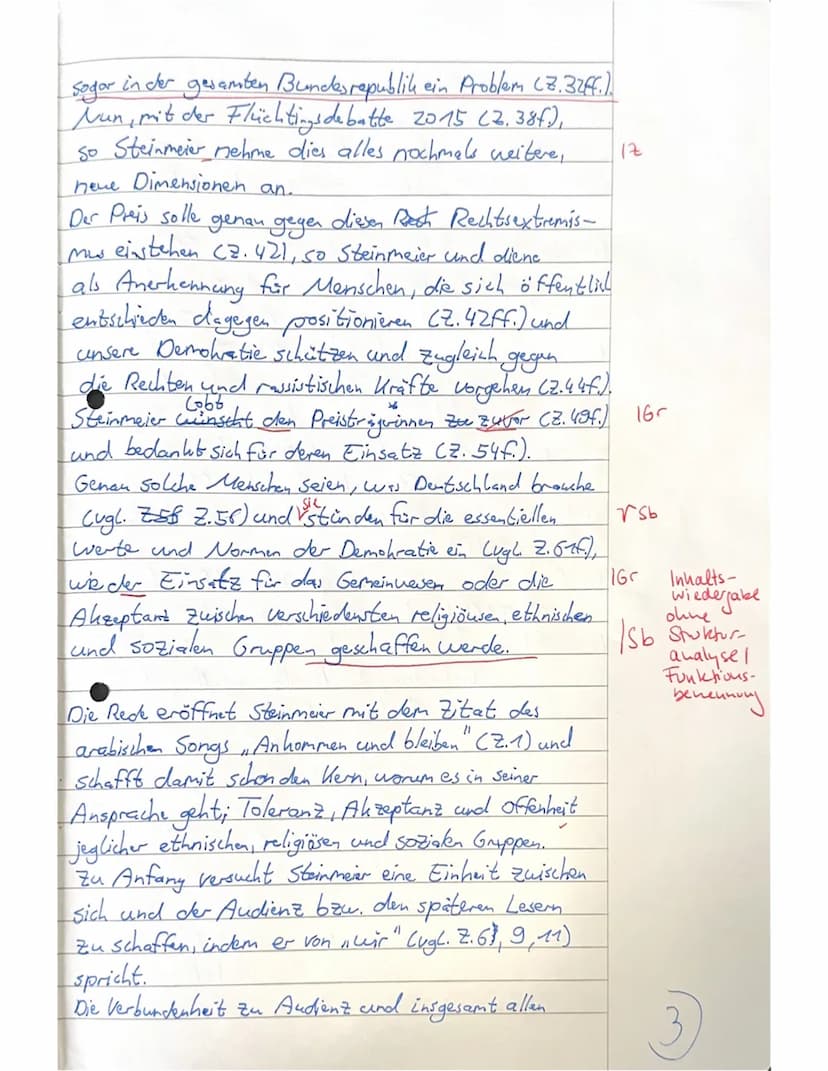 sogar in der gesamten Bundesrepublik ein Problem (Z.32ff.).
Nun, mit der Flüchtingsdebatte 2015 (Z.38f),
so Steinmeier nehme dies alles nochmals weitere, IZ
neue Dimensionen an.
Der Preis solle genau gegen diesen Rechtsextremis-
mus einstehen (Z.42), so Steinmeier und diene
als Anerkennung für Menschen, die sich öffentlich
entschieden dagegen positionieren (Z.42ff.) und
unsere Demokratie schützen und zugleich gegen
die Rechten und rassistischen Kräfte vorgehen (Z.44f.).
Lobt
Steinmeier wünscht den Preisträgerinnen zuvor (Z.49f.) IGr
und bedankt sich für deren Einsatz (Z.54f.).
Genau solche Menschen seien, was Deutschland brauche
sie
(vgl. Z.56) und stünden für die essentiellen Sb
Werte und Normen der Demokratie ein (vgl. Z.61f),
wie der Einsatz für das Gemeinwesen oder die IGr
Akzeptanz zwischen verschiedensten religiösen, ethnischen
und sozialen Gruppen geschaffen werde. ISb
Inhalts-
wiedergabe
ohne
Struktur-
analyse/
Funktions-
benennung
Die Rede eröffnet Steinmeier mit dem Zitat des
arabischen Songs „Ankommen und bleiben" (Z.1) und
schafft damit schon den Kern, worum es in seiner
Ansprache geht; Toleranz, Akzeptanz und Offenheit
jeglicher ethnischen, religiösen und sozialen Gruppen.
Zu Anfang versucht Steinmeier eine Einheit zwischen
sich und der Audienz bzw. den späteren Lesern
zu schaffen, indem er von „wir" (vgl. Z.6, 9, 11)
spricht.
Die Verbundenheit zu Audienz und insgesamt allen
3